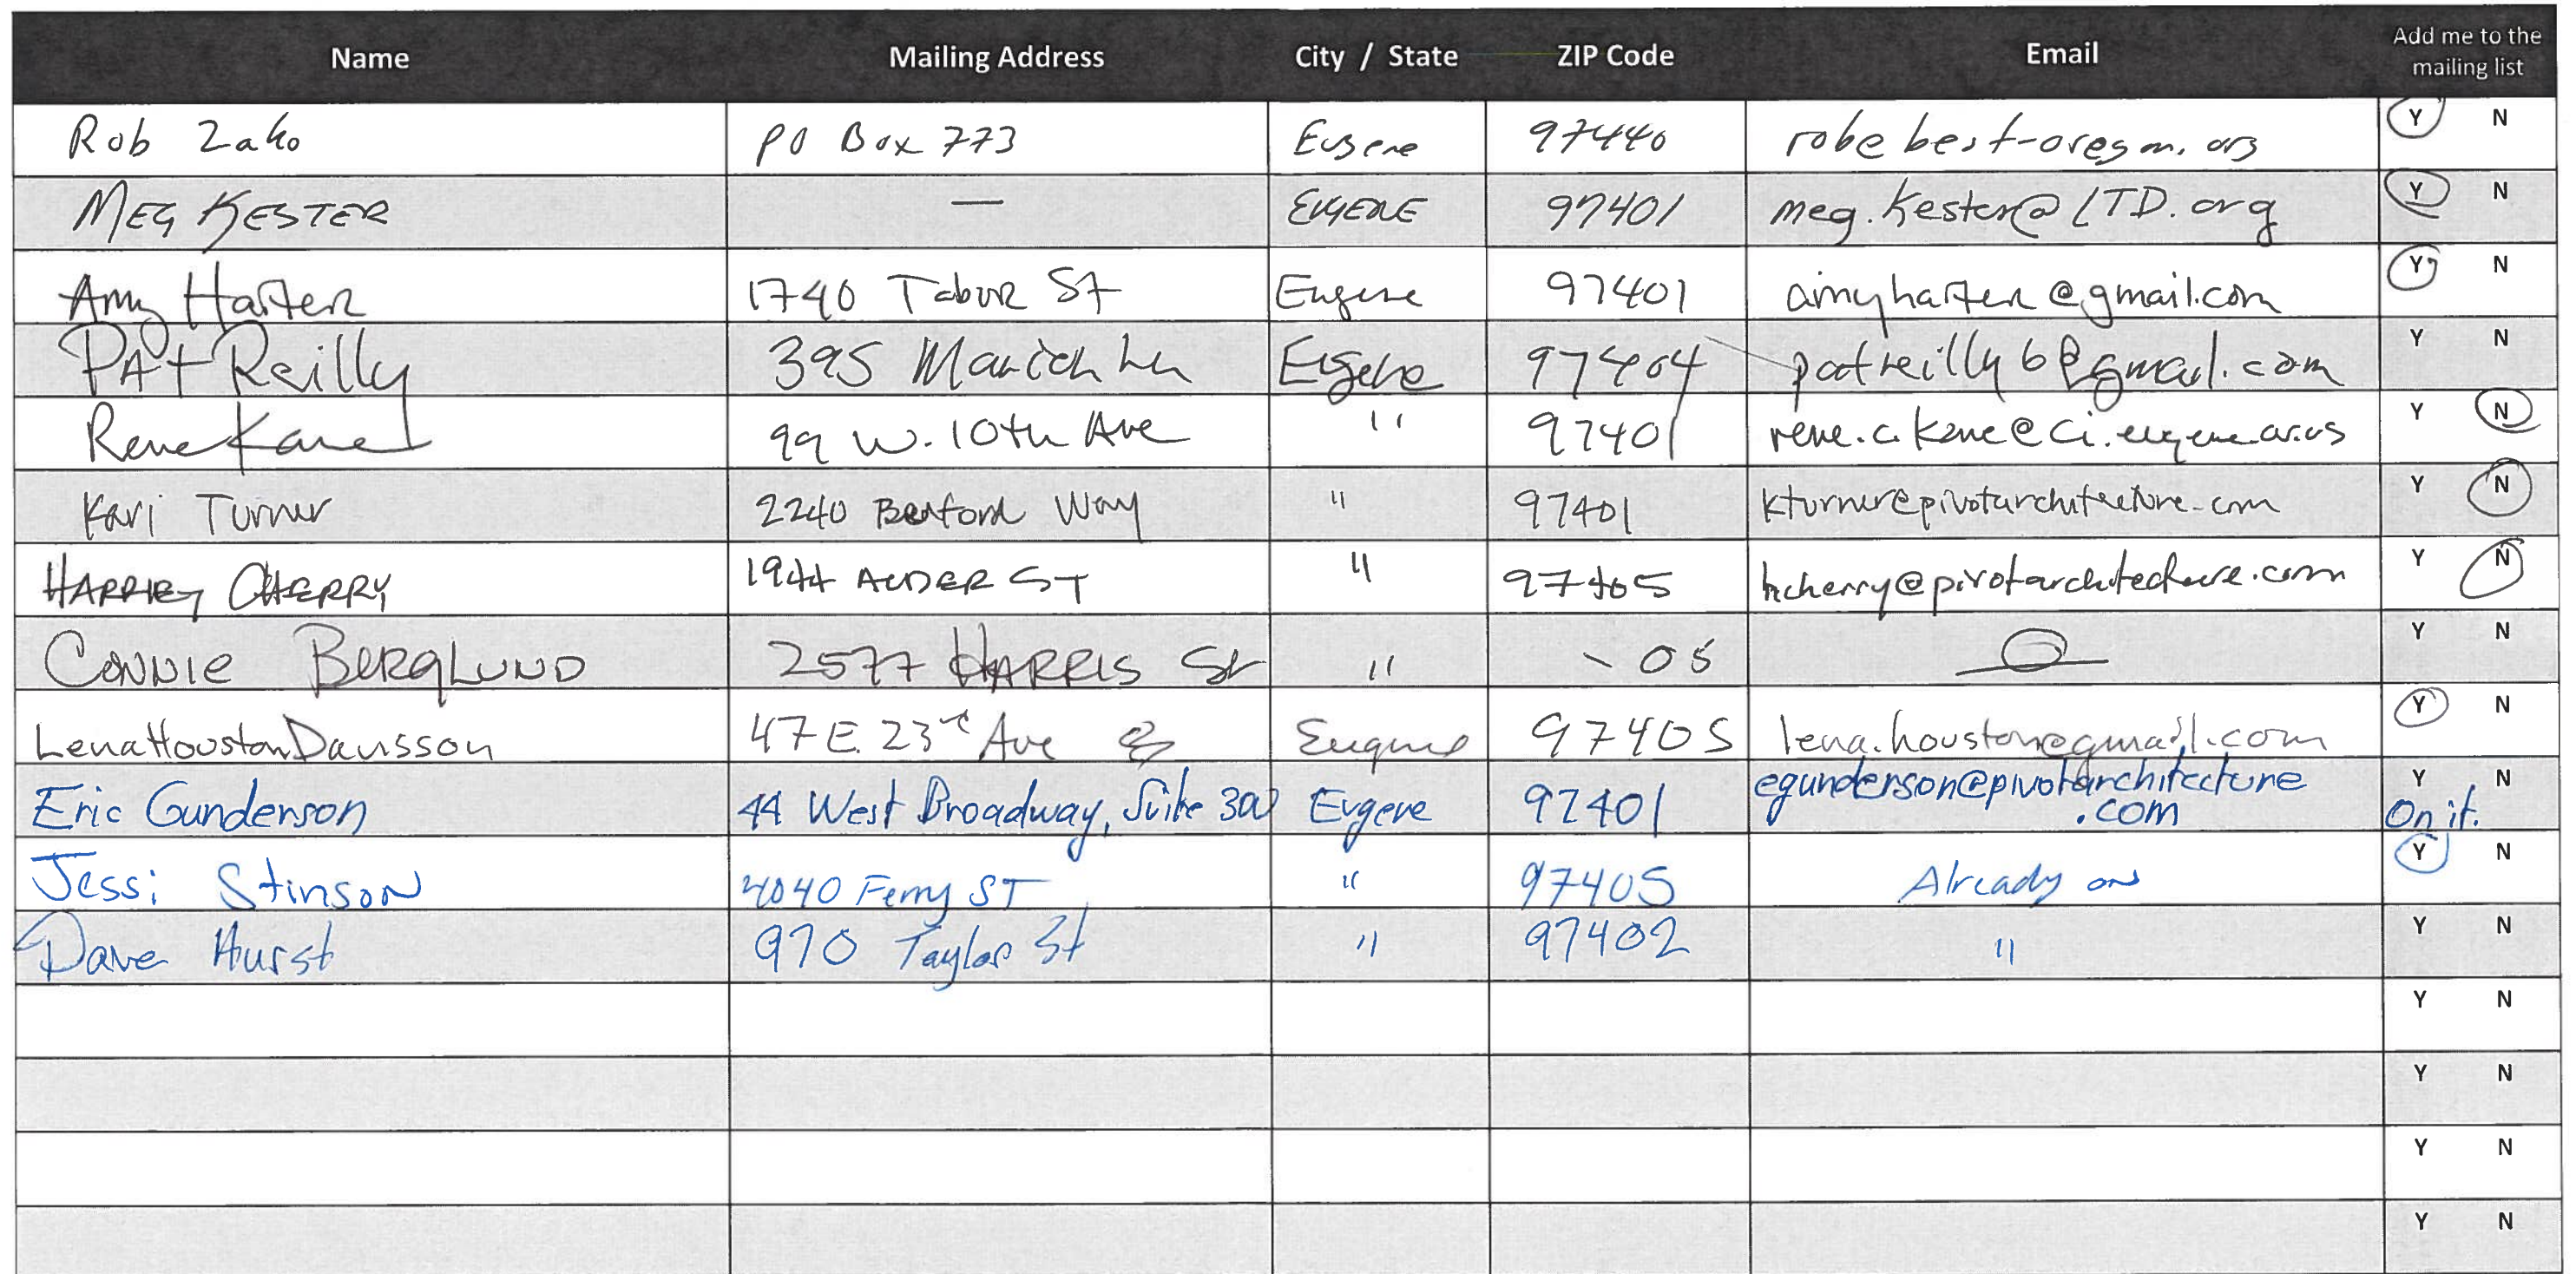 Name Mailing Address City / State ZIP Code Email Add me to the mailing list
Rob Zako PO Box 773 Eugene 97440 rob@best-oregon.org Y N
MEG KESTER — EUGENE 97401 meg.kester@LTD.org Y N
Amy Harter 1740 Tabor St Eugene 97401 amyharter@gmail.com Y N
PAt Reilly 395 Marion Ln Eugene 97404 patreilly6@gmail.com Y N
Rene Kane 99 W. 10th Ave " 97401 rene.c.kane@ci.eugene.or.us Y N
Kari Turner 2240 Way " 97401 kturner@pivotarchitecture.com Y N
HARRIET CHERRY 1944 ALDER ST " 97405 hcherry@pivotarchitecture.com Y N
CONNIE BERGLUND 2577 HARRIS St " - 05 Y N
Lena Houston Davisson 47 E. 23rd Ave Eugene 97405 lena.houston@gmail.com Y N
Eric Gunderson 44 West Broadway, Suite 300 Eugene 97401 egunderson@pivotarchitecture.com Y N
On it.
Jessi Stinson 4040 Ferry ST " 97405 Already on Y N
Dave Hurst 970 Taylor St " 97402 " Y N
Y N
Y N
Y N
Y N